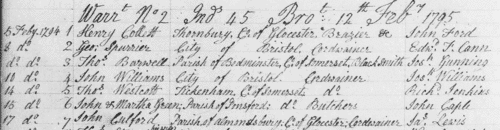 Warr.t No 2 Ind.s 45 Bro.t 12th Feb.y 1795
5 Feby. 1794 1 Henry Collett Thornbury, C.o of Glocester Brazier &c John Ford
8 d.o 2 Geo. Spurrier City of Bristol. Cordwainer Edw.d T. Cann
d.o d.o 3 Tho.s Barwell Parish of Bedminster, C.o of Somerset, Black Smith Jos.h Gunning
10 d.o 4 John Williams City of Bristol. Cordwainer Jos.h Williams
14 d.o 5 Tho.s Westcott Tickenham, C. of Somerset d.o Rich.d Jenkins
15 d.o 6 John & Martha Green, Parish of d.o Butchers John Cople
17 d.o 7 John Parish of Almondsbury, C. of Glocester, Cordwainer Ja.s Lewis